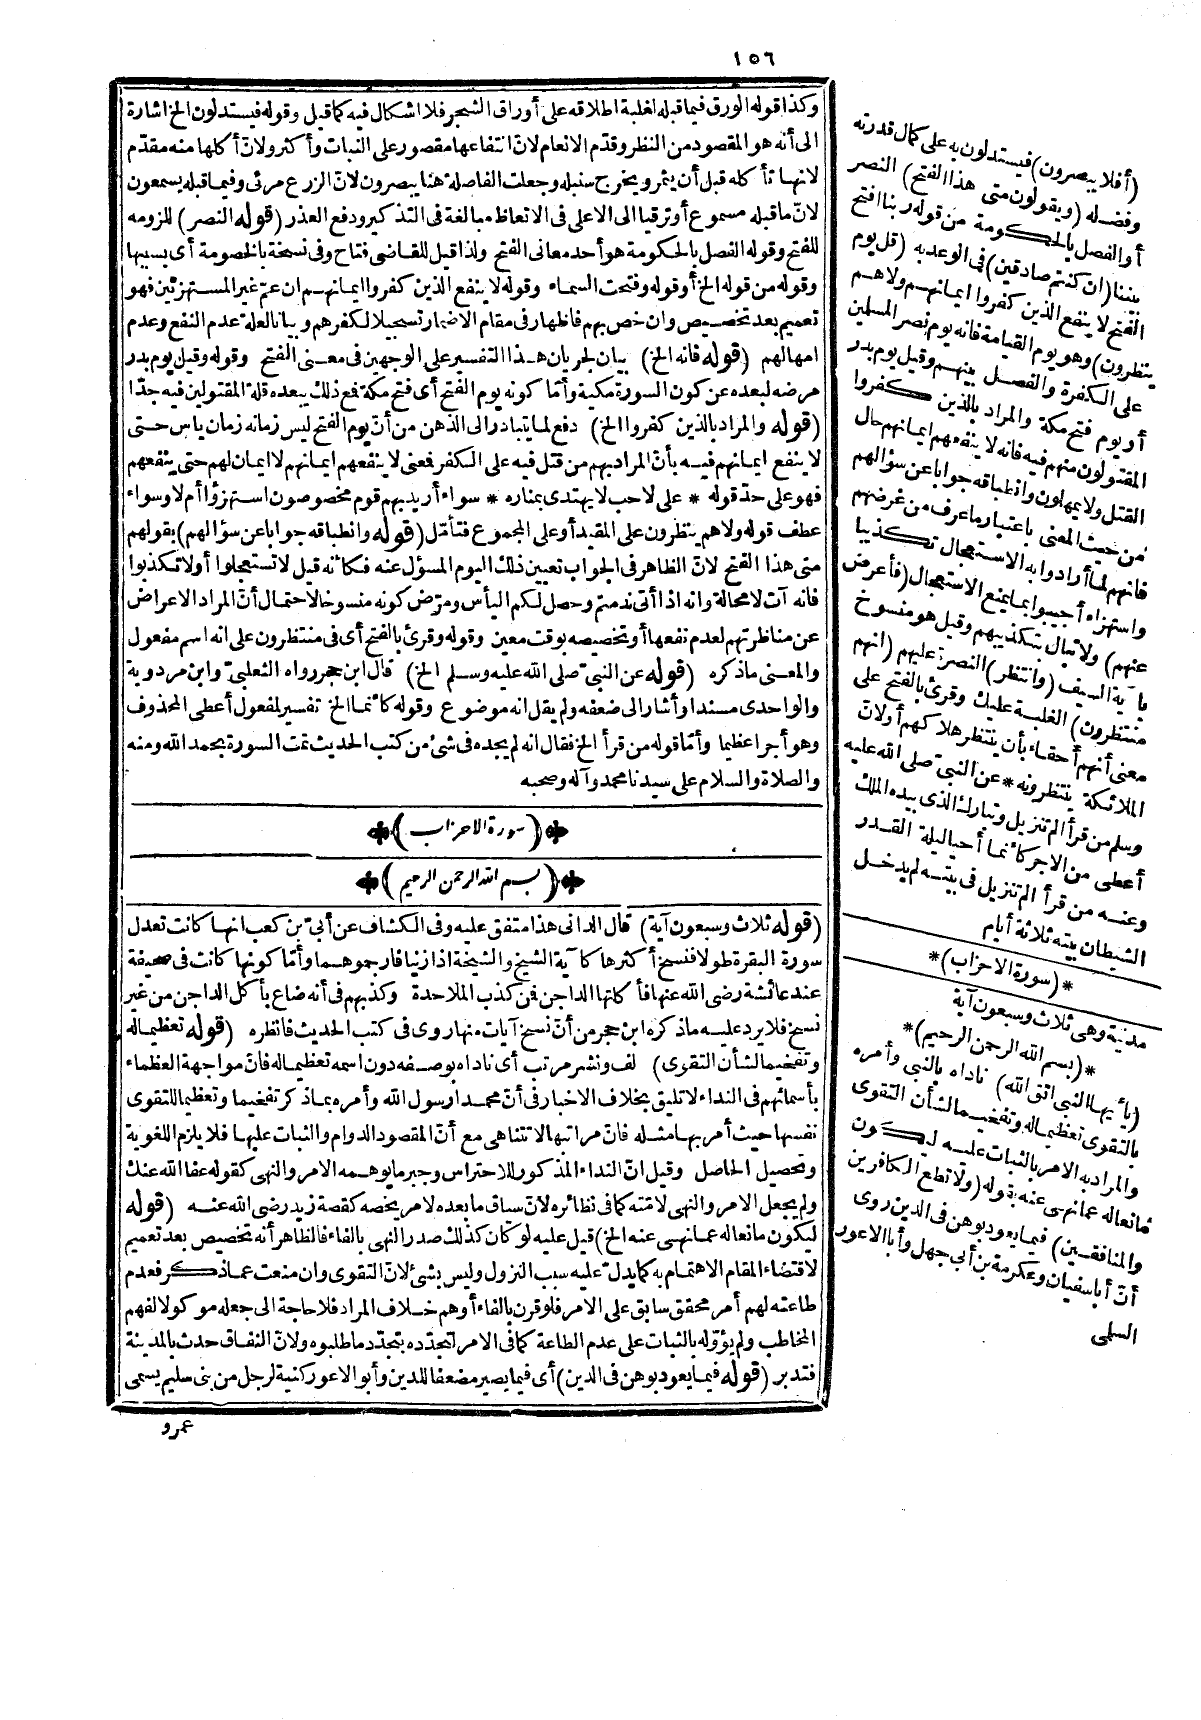 ١٥٦
وكذا قوله الورق فيما قبله لغلبة اطلاقه على أوراق الشجر فلا اشكال فيه كما قيل وقوله فيستدلون الخ اشارة
الى أنه هو المقصود من النظر وقدم الانعام لان انتفاعها مقصور على النبات وأكثر ولان أكلها منه مقدم
لانها تأكله قبل أن يثمر ويخرج سنبله وجعلت الفاصلة هنا يبصرون لان الزرع مرئى وفيما قبله يسمعون
لان ما قبله مسموع أو ترقيا الى الاعلى فى الاتعاظ مبالغة فى التذكير ودفع العذر (قوله النصر) للزومه
للفتح وقوله الفصل بالحكومة هو أحد معانى الفتح ولذا قيل للقاضى فتاح وفى نسخة بالخصومة أى بسببها
وقوله من قوله الخ أو قوله وفتحت السماء وقوله لا ينفع الذين كفروا ايمانهم ان عم غير المستهزئين فهو
تعميم بعد تخصيص وان خص بهم فاظهار فى مقام الاضمار تسجيلا لكفرهم وبيانا لعلة عدم النفع وعدم
امهالهم (قوله فانه الخ) بيان لجريان هذا التفسير على الوجهين فى معنى الفتح وقوله وقيل يوم بدر
مرضه لبعده عن كون السورة مكية وأما كونه يوم الفتح أى فتح مكة فمع ذلك يبعده قلة المقتولين فيه جدا
(قوله والمراد بالذين كفروا الخ) دفع لما يتبادر الى الذهن من أن يوم الفتح ليس زمانه زمان يأس حتى
لا ينفع ايمانهم فيه بأن المراد بهم من قتل فيه على الكفر فمعنى لا ينفعهم ايمانهم لا ايمان لهم حتى ينفعهم
فهو على حد قوله * على لاحب لا يهتدى بمناره * سواء أريد بهم قوم مخصوصون استهزؤا أم لا وسواء
عطف قوله ولا هم ينظرون على المقيد أو على المجموع فتأمل (قوله وانطباقه جوابا عن سؤالهم) بقولهم
متى هذا الفتح لان الظاهر فى الجواب تعيين ذلك اليوم المسؤل عنه فكأنه قيل لا تستعجلوا أو لا تكذبوا
فانه آت لا محالة وانه اذا أتى ندمتم وحصل لكم اليأس ومرض كونه منسوخا لاحتمال أن المراد الاعراض
عن مناظرتهم لعدم نفعها أو تخصيصه بوقت معين وقوله وقرئ بالفتح أى فى منتظرون على انه اسم مفعول
والمعنى ما ذكره (قوله عن النبى صلى الله عليه وسلم الخ) قال ابن حجر رواه الثعلبى وابن مردوية
والواحدى مسندا وأشار الى ضعفه ولم يقل انه موضوع وقوله كأنما الخ تفسير لمفعول أعطى المحذوف
وهو أجرا عظيما وأما قوله من قرأ الخ فقال انه لم يجده فى شئ من كتب الحديث تمت السورة بحمد الله ومنه
والصلاة والسلام على سيدنا محمد وآله وصحبه
(سورة الاحزاب)
(بسم الله الرحمن الرحيم)
(قوله ثلاث وسبعون آية) قال الدانى هذا متفق عليه وفى الكشاف عن أبى بن كعب انها كانت تعدل
سورة البقرة طولا فنسخ أكثرها كآية الشيخ والشيخة اذا زنيا فارجموهما وأما كونها كانت فى صحيفة
عند عائشة رضى الله عنها فأكلتها الداجن فمن كذب الملاحدة وكذبهم فى أنه ضاع بأكل الداجن من غير
نسخ فلا يرد عليه ما ذكره ابن حجر من أن نسخ آيات منها روى فى كتب الحديث فانظره (قوله تعظيما له
وتفخيما لشأن التقوى) لف ونشر مرتب أى ناداه بوصفه دون اسمه تعظيما له فان مواجهة العظماء
بأسمائهم فى النداء لا تليق بخلاف الاخبار فى أن محمدا رسول الله وأمره بما ذكر تفخيما وتعظيما للتقوى
نفسها حيث أمر بها مثله فان مراتبها لا تتناهى مع أن المقصود الدوام والثبات عليها فلا يلزم اللغوية
وتحصيل الحاصل وقيل ان النداء المذكور للاحتراس وجبر ما يوهمه الامر والنهى كقوله عفا الله عنك
ولم يجعل الامر والنهى لامته كما فى نظائره لان سياق ما بعده لامر يخصه كقصة زيد رضى الله عنه (قوله
ليكون مانعا له عما نهى عنه الخ) قيل عليه لو كان كذلك صدر النهى بالفاء فالظاهر أنه تخصيص بعد تعميم
لاقتضاء المقام الاهتمام به كما يدل عليه سبب النزول وليس بشئ لان التقوى وان منعت عما ذكر فعدم
طاعته لهم أمر محقق سابق على الامر فلو قرن بالفاء أوهم خلاف المراد فلا حاجة الى جعله موكولا لفهم
المخاطب ولم يؤوله بالثبات على عدم الطاعة كما فى الامر لتجدده بتجدد ما طلبوه ولان النفاق حدث بالمدينة
فتدبر (قوله فيما يعود بوهن فى الدين) أى فيما يصير مضعفا للدين وأبو الاعور كنية لرجل من بنى سليم يسمى
عمرو
(أفلا يبصرون) فيستدلون به على كمال قدرته
وفضله (ويقولون متى هذا الفتح) النصر
أو الفصل بالحكومة من قوله ربنا افتح
بيننا (ان كنتم صادقين) فى الوعد به (قل يوم
الفتح لا ينفع الذين كفروا ايمانهم ولا هم
ينظرون) وهو يوم القيامة فانه يوم نصر المسلمين
على الكفرة والفصل بينهم وقيل يوم بدر
أو يوم فتح مكة والمراد بالذين كفروا
المقتولون منهم فيه فانه لا ينفعهم ايمانهم حال
القتل ولا يمهلون وانطباقه جوابا عن سؤالهم
من حيث المعنى باعتبار ما عرف من غرضهم
فانهم لما أرادوا به الاستعجال تكذيبا
واستهزاء أجيبوا بما يمنع الاستعجال (فأعرض
عنهم) ولا تبال بتكذيبهم وقيل هو منسوخ
بآية السيف (وانتظر) النصرة عليهم (انهم
منتظرون) الغلبة عليك وقرئ بالفتح على
معنى أنهم أحقاء بأن ينتظر هلاكهم أو لان
الملائكة ينتظرونه * عن النبى صلى الله عليه
وسلم من قرأ الم تنزيل وتبارك الذى بيده الملك
أعطى من الاجر كأنما أحيا ليلة القدر
وعنه من قرأ الم تنزيل فى بيته لم يدخل
الشيطان بيته ثلاثة أيام
* (سورة الاحزاب) *
مدنية وهى ثلاث وسبعون آية
* (بسم الله الرحمن الرحيم) *
(يا أيها النبى اتق الله) ناداه بالنبى وأمره
بالتقوى تعظيما له وتفخيما لشأن التقوى
والمراد به الامر بالثبات عليه ليكون
مانعا له عما نهى عنه بقوله (ولا تطع الكافرين
والمنافقين) فيما يعود بوهن فى الدين روى
أن أبا سفيان وعكرمة بن أبى جهل وأبا الاعور
السلمى